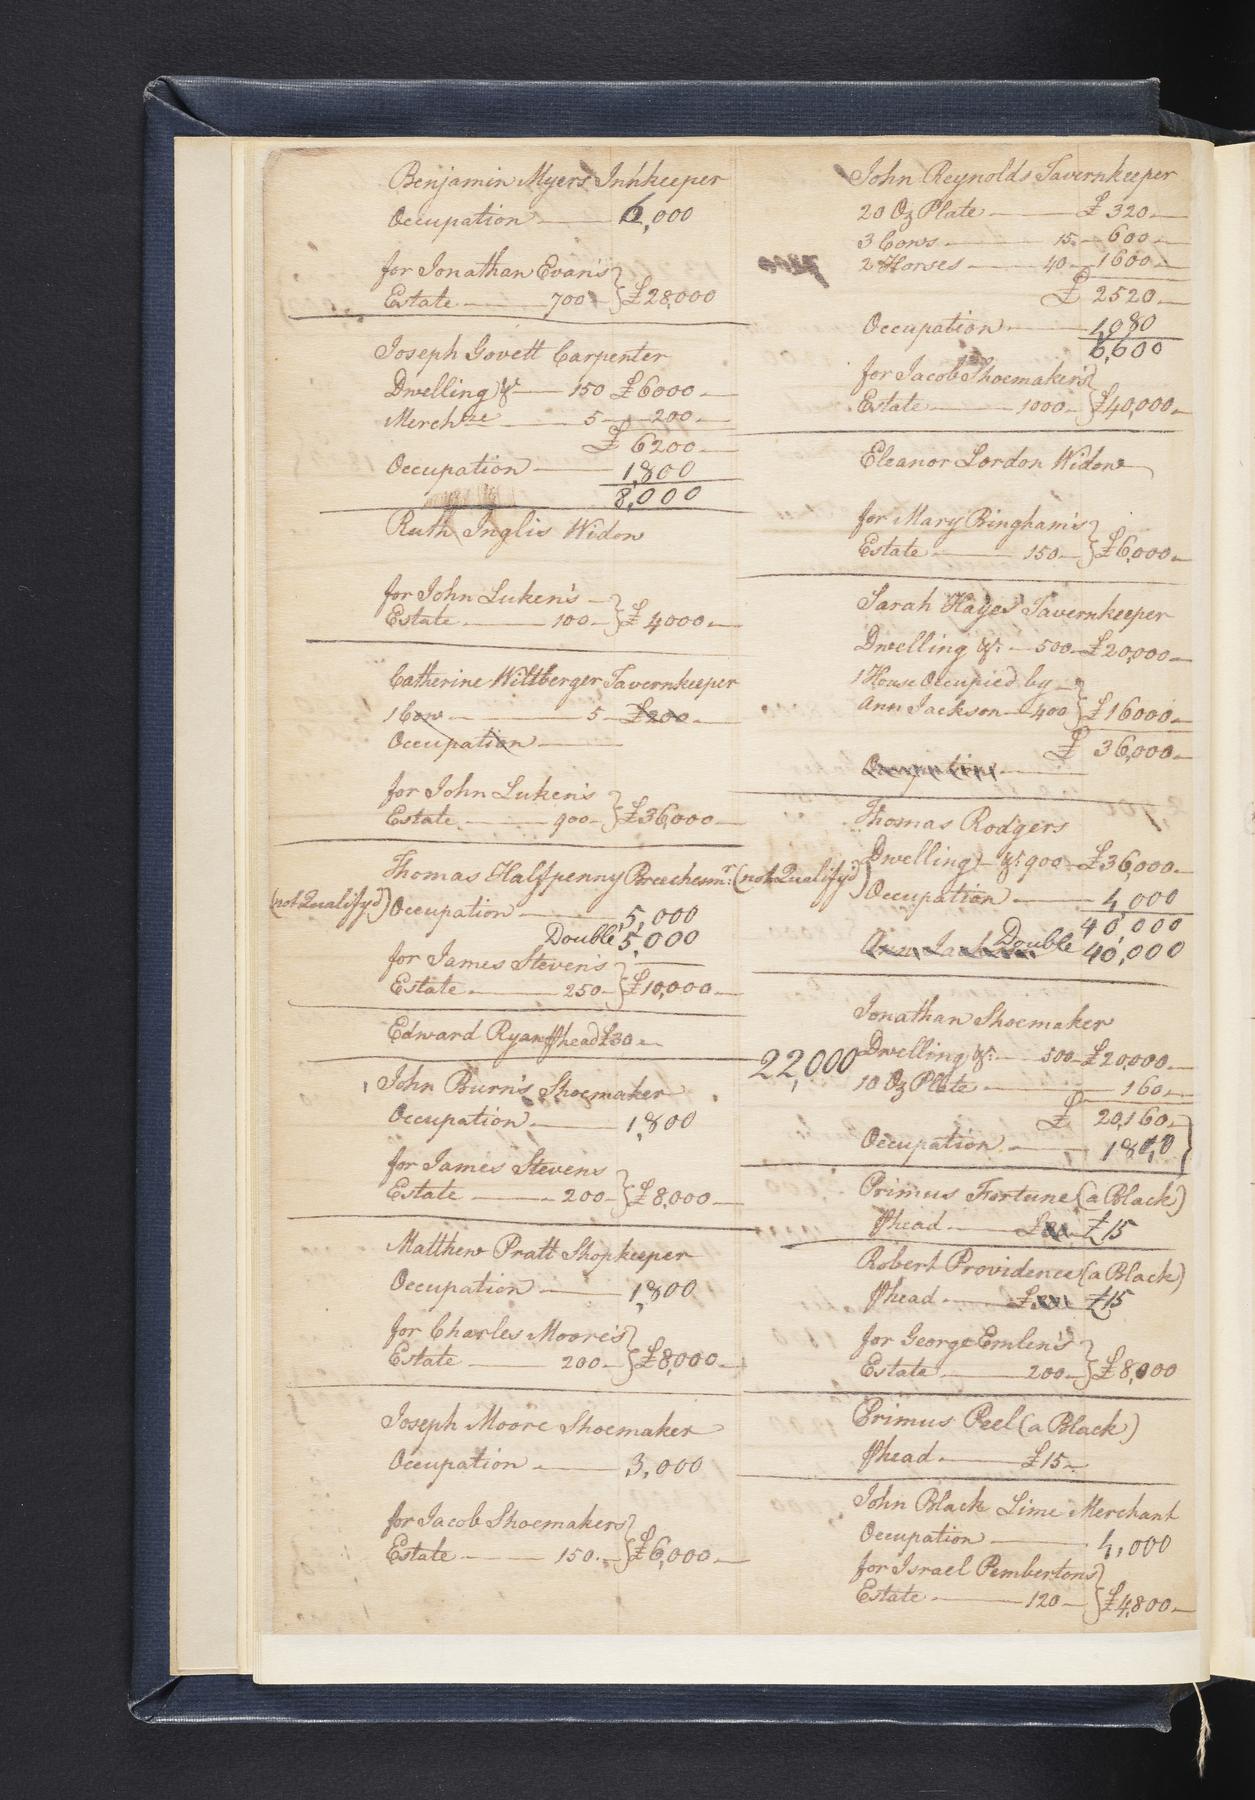 Benjamin Myers Innkeeper
Occupation 6,000
for Jonathan Evans
Estate 700 } £28,000
Joseph Govett Carpenter
Dwelling &c 150 £6000
Merchze 5 200
£ 6200
Occupation 1,800
8,000
Ruth Inglis Widow
for John Luken's
Estate 100 } £4000
Catherine Wiltberger Tavernkeeper
1 Cow 5 £200
Occupation
for John Luken's
Estate 900 } £36,000
Thomas Halfpenny Breechesmr.
(not Qualifyd) Occupation 5,000
Double 5,000
for James Steven's
Estate 250 } £10,000
Edward Ryan ⅌head £30
John Burn's Shoemaker
Occupation 1,800
for James Stevens
Estate 200 } £8,000
Matthew Pratt Shopkeeper
Occupation 1,800
for Charles Moore's
Estate 200 } £8,000
Joseph Moore Shoemaker
Occupation 3,000
for Jacob Shoemakers
Estate 150 } £6,000
John Reynolds Tavernkeeper
20 Oz Plate £320
3 Cows 15 600
2 Horses 40 1600
£ 2520
Occupation 4,080
6,600
for Jacob Shoemaker's
Estate 1000 } £40,000
Eleanor Lordon Widow
for Mary Bingham's
Estate 150 } £6,000
Sarah Hayes Tavernkeeper
Dwelling &c. 500 £20,000
1 House Occupied by
Ann Jackson 400 } £16000
£ 36,000
Occupation
Thomas Rodgers
(not Qualifyd) Dwelling &c. 900 £36,000
Occupation 4,000
40,000
Double 40,000
Jonathan Shoemaker
22,000 Dwelling &c. 500 £20,000
10 Oz Plate 160
£ 20,160
Occupation
Primus Fortune (a Black)
⅌head £15
Robert Providence (a Black)
⅌head £15
for George Emlen's
Estate 200 } £8,000
Primus Peel (a Black)
⅌head £15
John Black Lime Merchant
Occupation 4,000
for Israel Pembertons
Estate 120 } £4,800